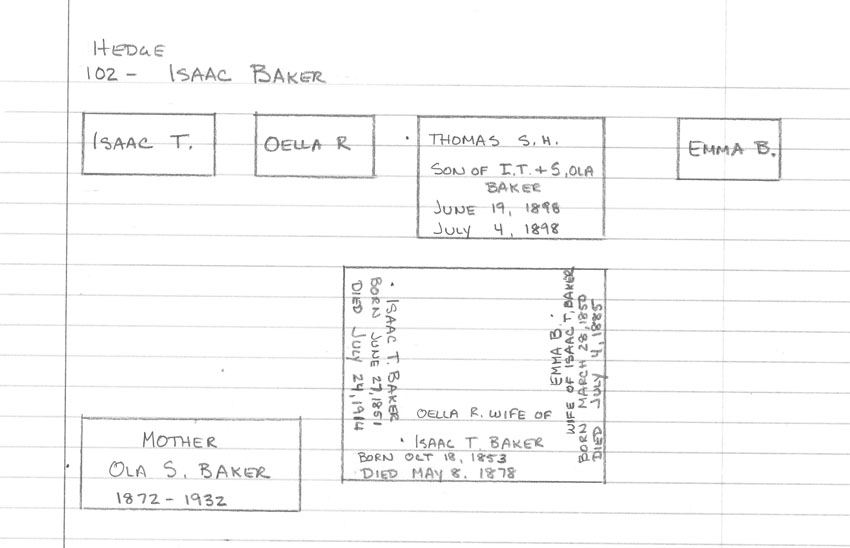 HEDGE
102 - ISAAC BAKER
ISAAC T.
OELLA R
THOMAS S. H.
SON OF I.T. + S, OLA
BAKER
JUNE 19, 1898
JULY 4, 1898
EMMA B.
ISAAC T. BAKER
BORN JUNE 27, 1851
DIED JULY 24, 1914
EMMA B.
WIFE OF ISAAC T, BAKER
BORN MARCH 28, 1850
DIED JULY 4, 1885
OELLA R. WIFE OF
ISAAC T. BAKER
BORN OCT 18, 1853
DIED MAY 8. 1878
MOTHER
OLA S. BAKER
1872 - 1932